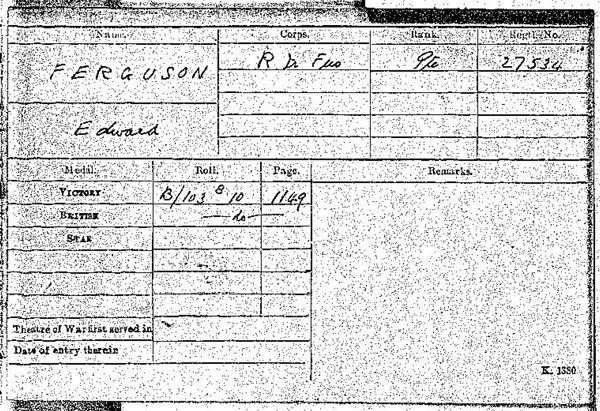 Name. Corps. Rank. Regtl. No.
FERGUSON R D Fus Pte 27534
Edward
Medal. Roll. Page. Remarks.
VICTORY B/103 B 10 1149
BRITISH —do—
STAR
Theatre of War first served in
Date of entry therein
K. 1380